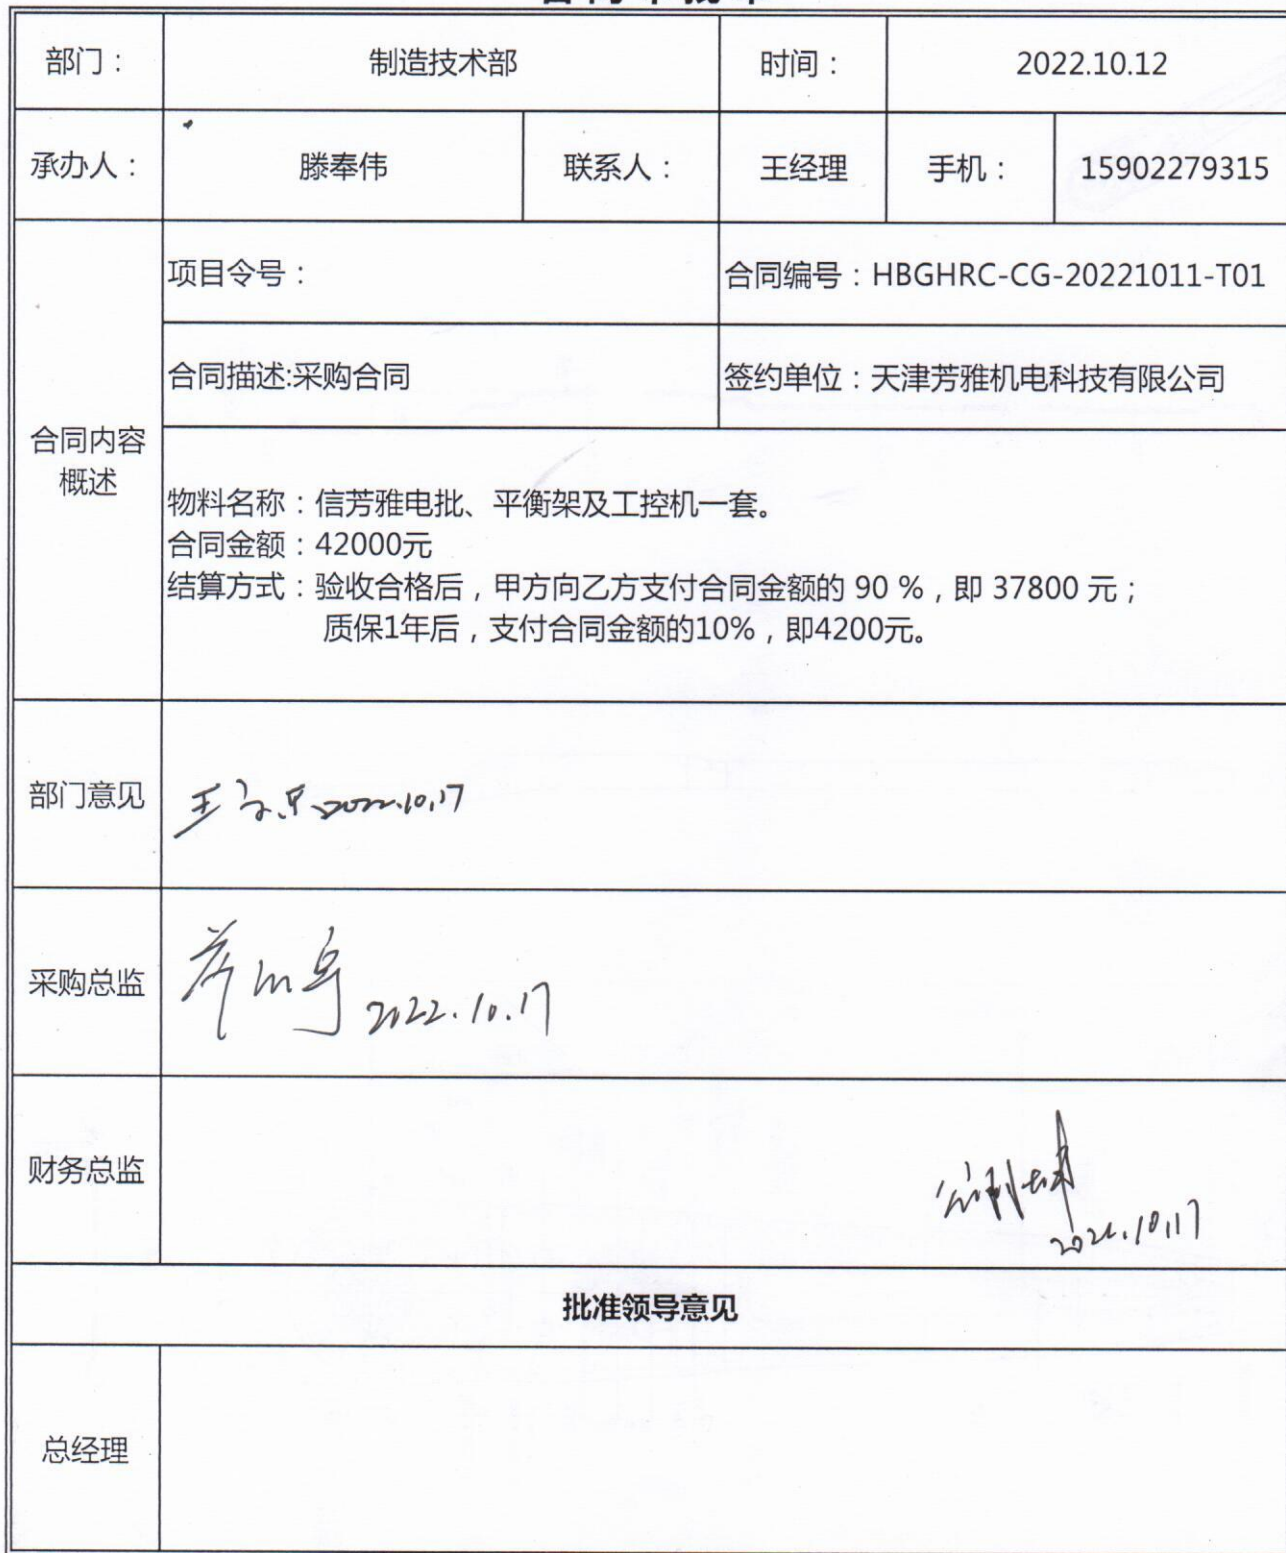 部门： 制造技术部 时间： 2022.10.12
承办人： 滕奉伟 联系人： 王经理 手机： 15902279315
项目令号： 合同编号：HBGHRC-CG-20221011-T01
合同描述:采购合同 签约单位：天津芳雅机电科技有限公司
合同内容
概述
物料名称：信芳雅电批、平衡架及工控机一套。
合同金额：42000元
结算方式：验收合格后，甲方向乙方支付合同金额的 90 %，即 37800 元；
质保1年后，支付合同金额的10%，即4200元。
部门意见 2022.10.17
采购总监 2022.10.17
财务总监
2022.10.17
批准领导意见
总经理